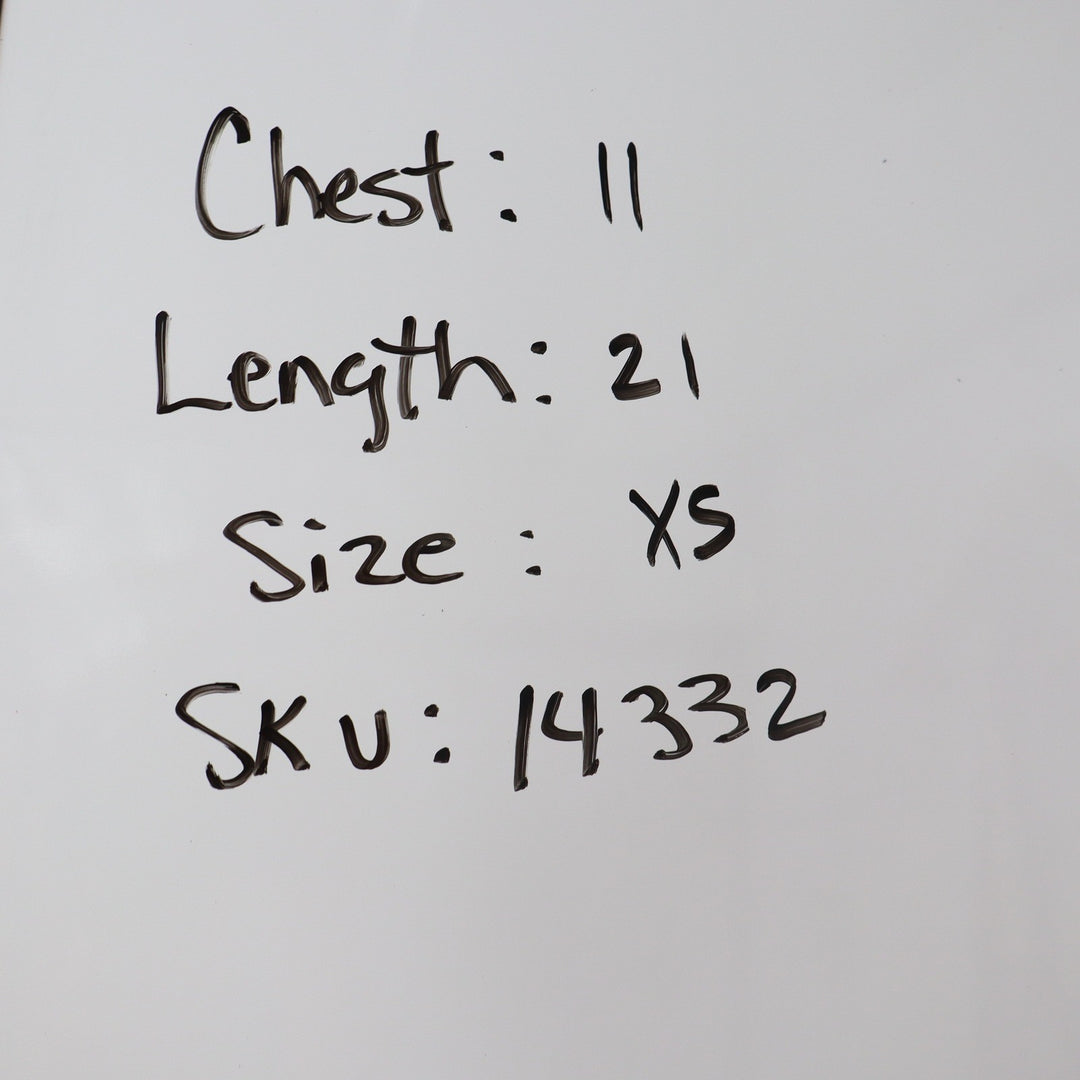 Chest: 11
Length: 21
Size: XS
SKU: 14332